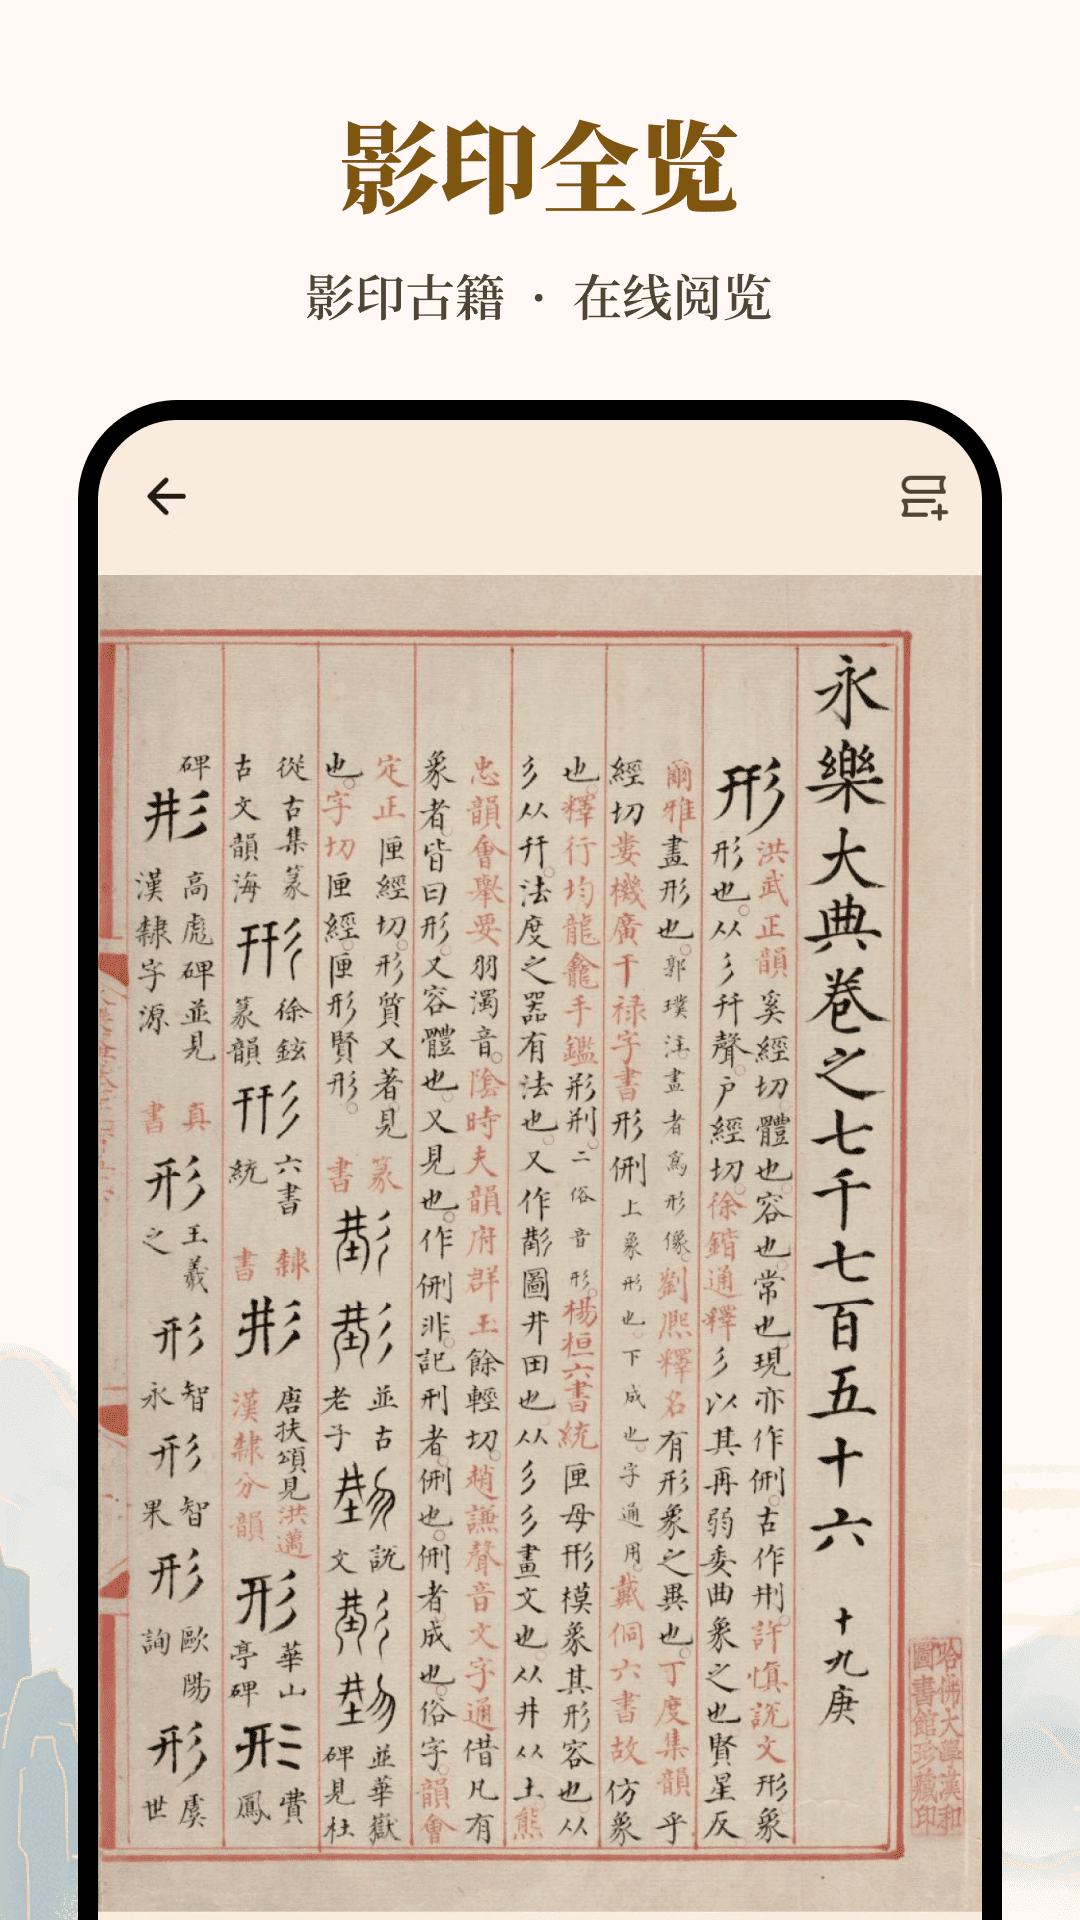 影印全览
影印古籍 · 在线阅览
永樂大典卷之七千七百五十六 十九庚
形
洪武正韻奚經切體也容也常也現亦作侀古作㓝許慎說文形象
形也。从彡幵聲。戶經切。徐鍇通釋彡以其再弱委曲象之也賢星反
爾雅畫形也。郭璞注畫者為形像。劉熙釋名有形象之異也。丁度集韻乎
經切婁機廣干禄字書形侀上象形也下成也字通用。戴侗六書故仿象
也。釋行均龍龕手鑑形㓝。二俗音形。楊桓六書統匣母形模象其形容也。从
彡从幵。法度之器有法也。又作圖井田也。从彡彡畫文也。从井从土熊
忠韻會舉要羽濁音。陰時夫韻府群玉餘輕切。趙謙聲音文字通借凡有
象者。皆曰形。又容體也。又見也。作侀非。記刑者。侀也。侀者。成也。俗字。韻會
定正匣經切。形質又著見 篆
也。字切匣經。匣形賢形。 書
並古
老子
說
文
並華嶽
碑見杜
從古集篆
古文韻海
形
徐鉉
篆韻
形
六書
統
隸
書
形
唐扶頌見洪邁
漢隸分韻
形
華山
亭碑
形
費
鳳
碑
形
高彪碑並見
漢隸字源
真
書
形
王羲
之
形
智
永
形
智
果
形
歐陽
詢
形
虞
世
哈佛大學漢和
圖書館珍藏印